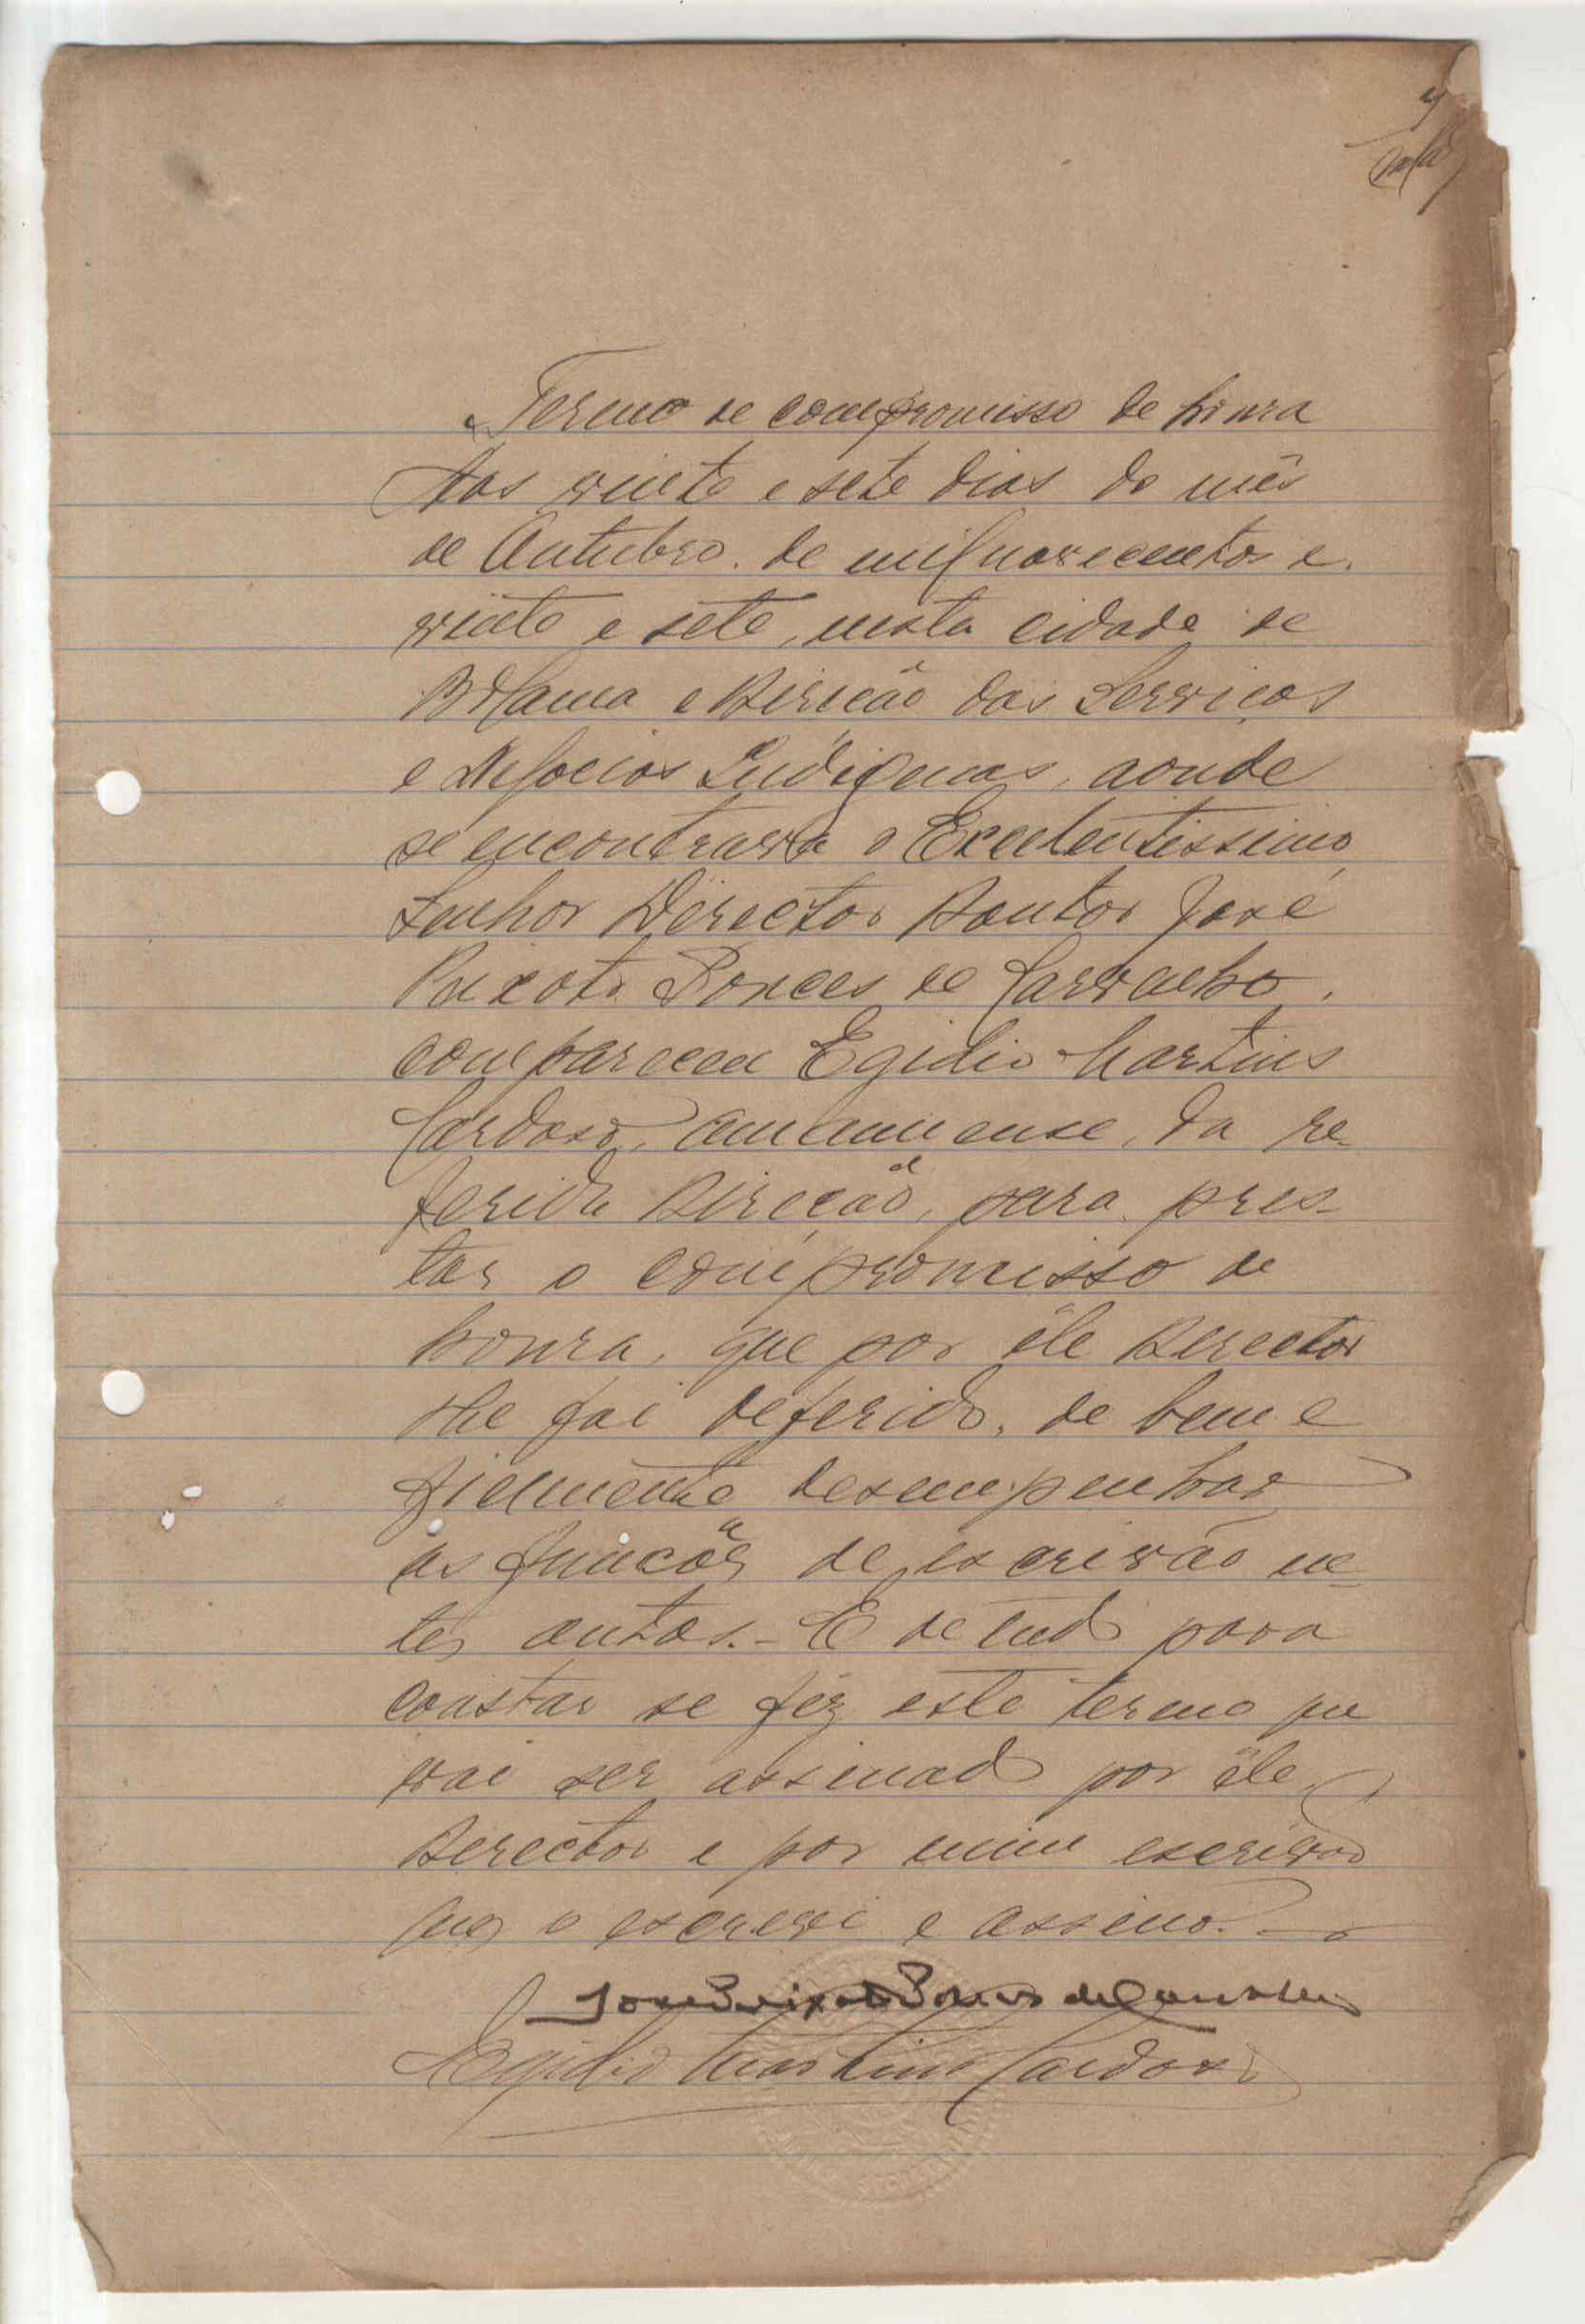 Termo de compromisso de honra
Aos vinte e sete dias do mês
de Outubro de mil novecentos e
vinte e sete, nesta cidade de
Bolama e Direcção dos Serviços
e Negocios Indigenas, aonde
se encontrava o Excelentissimo
Senhor Director Doutor José
Peixoto Ponces de Carvalho,
compareceu Egidio Martins
Cardoso, amanuense, da re-
ferida Direcção, para pres-
tar o compromisso de
honra, que por êle Director
lhe foi deferido, de bem e
fielmente desempenhar
as funcções de escrivão nes-
tes autos. - E de tudo para
constar se fêz este termo que
vai ser assinado por êle
Director e por mim escrivão
que o escrevi e assino. -
José Peixoto Ponces de Carvalho
Egidio Martins Cardoso